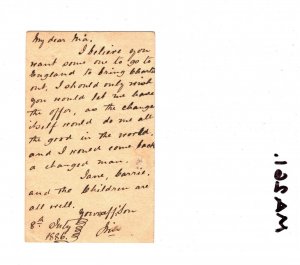 My dear Ma,
I believe you
want some one to go to
England to bring Charlie
out. I should only wish
you would let me have
the offer, as the change
itself would do me all
the good in the world,
and I would come back
a changed man.
Jane, Carrie,
and the Children are
all well.
Your aff: Son
8th July
1886.
MA2521.